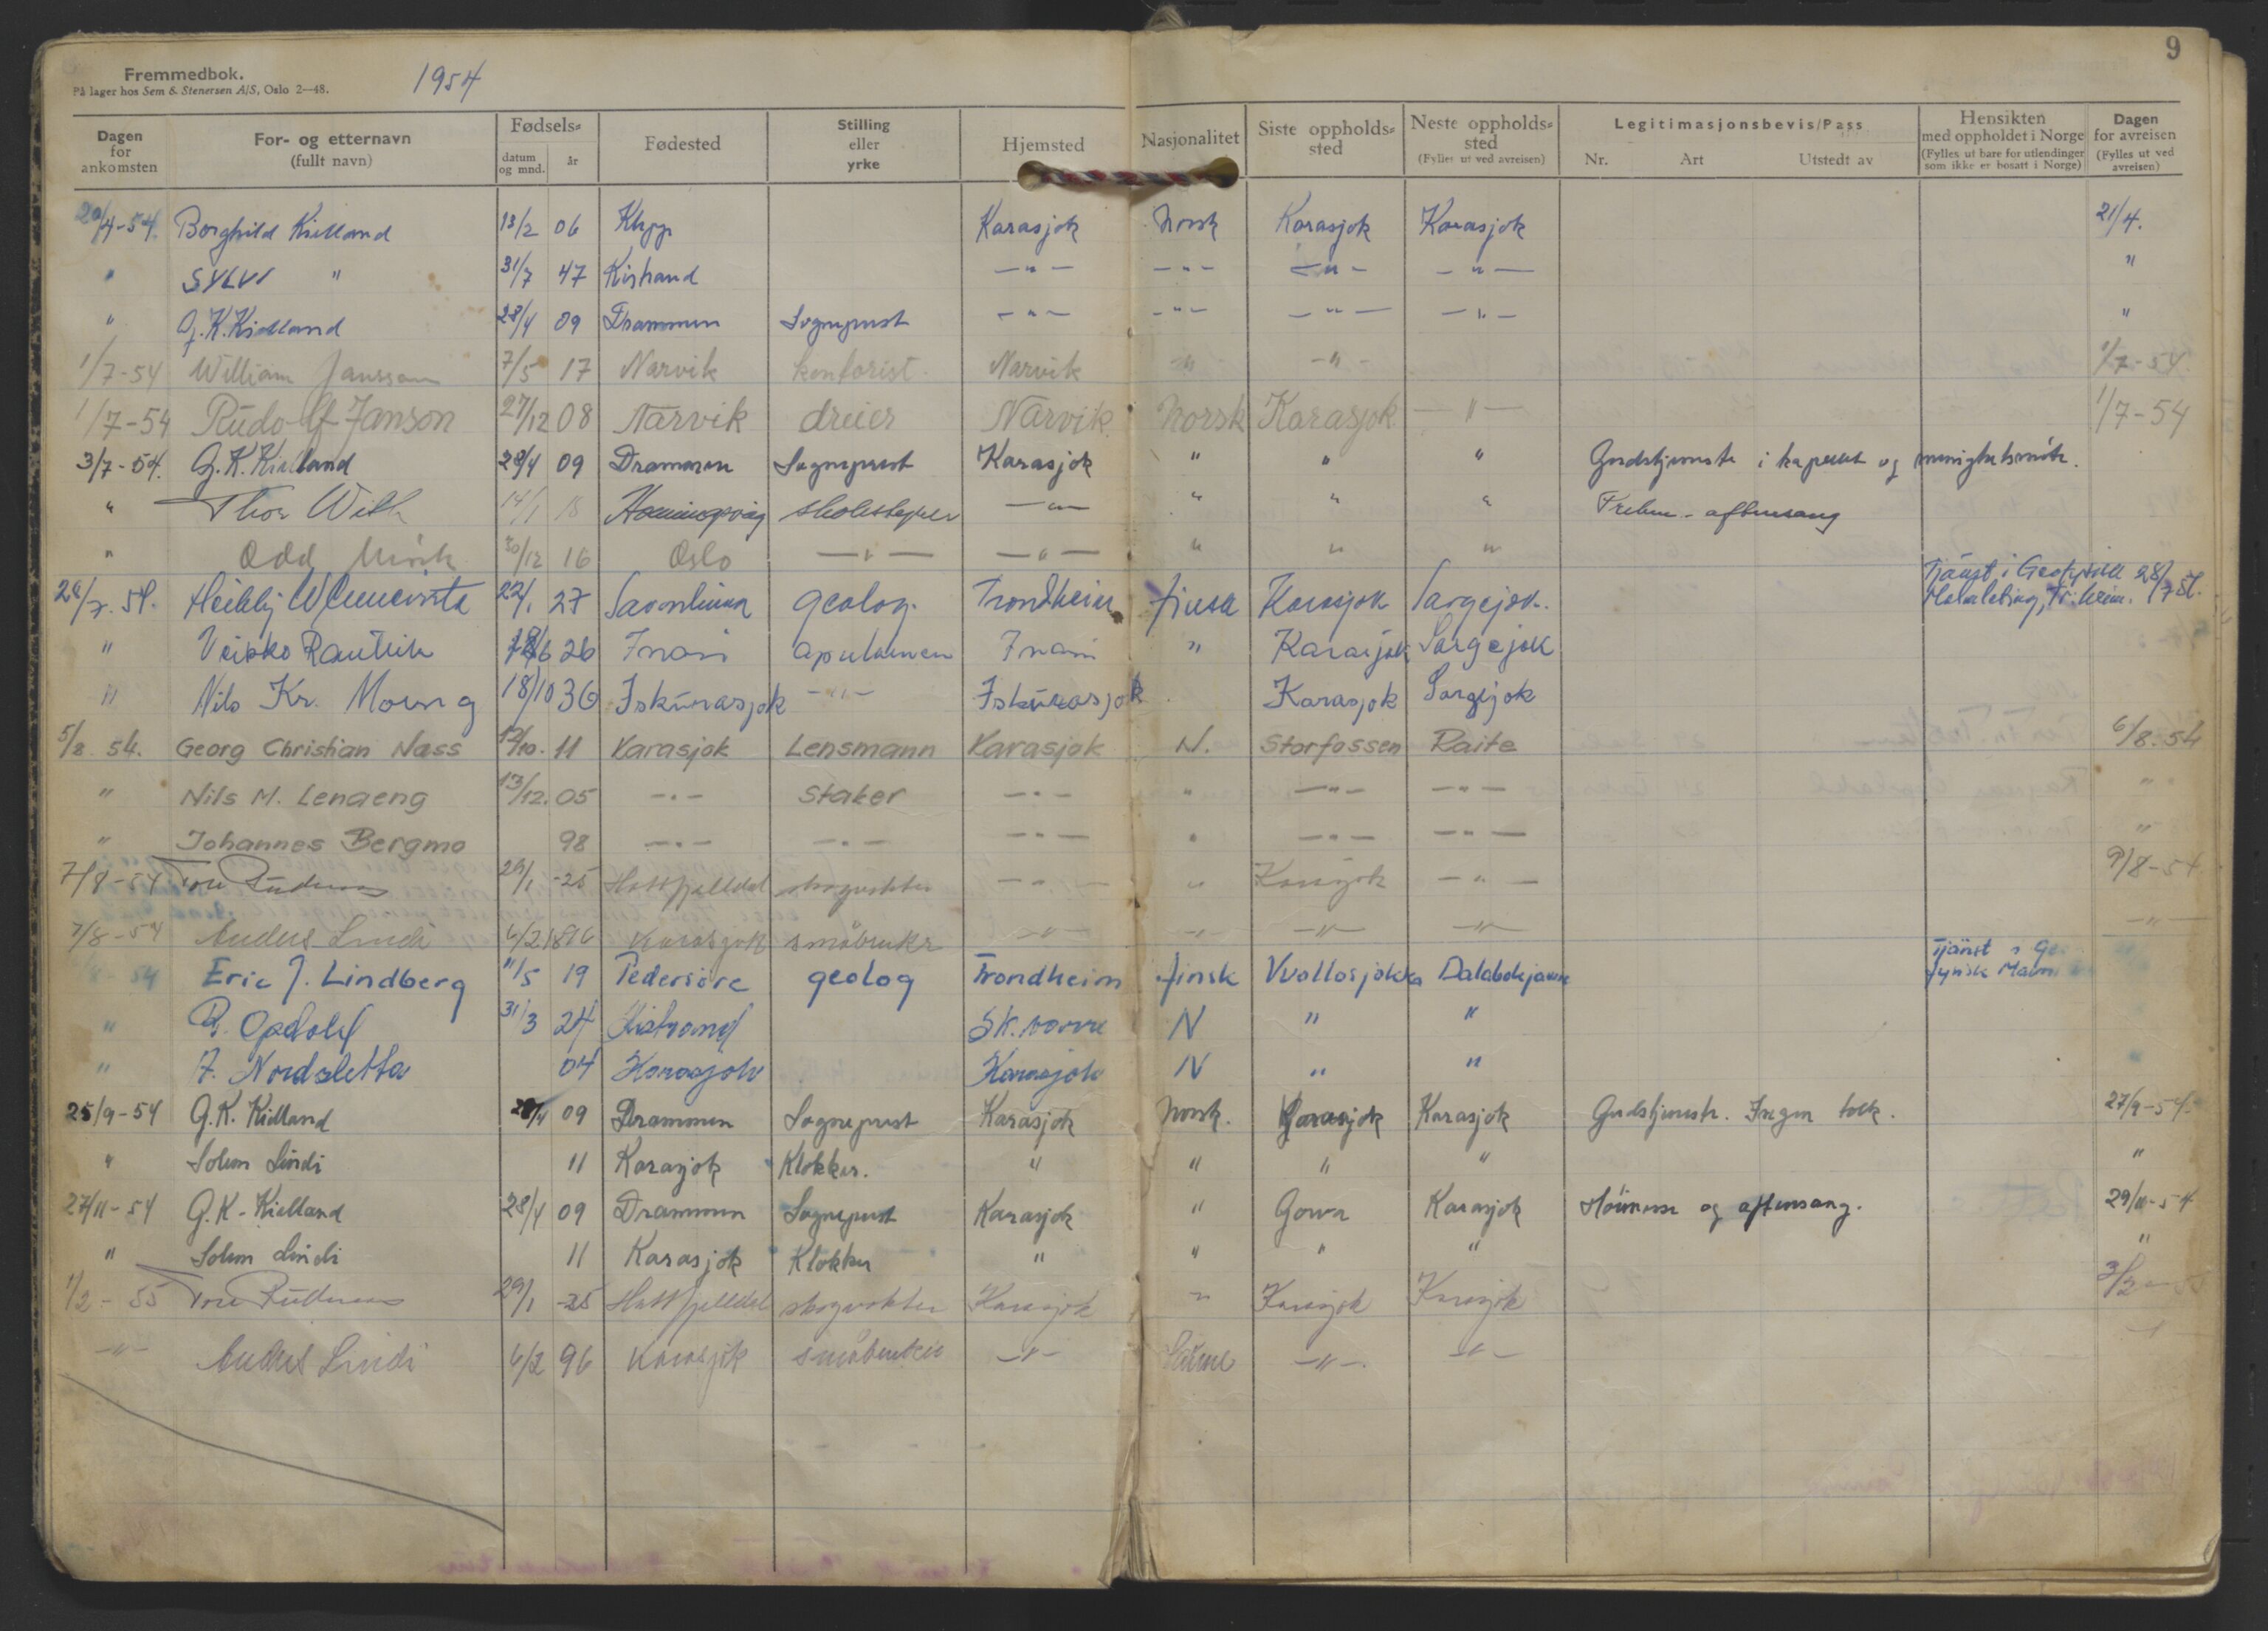 9
Fremmedbok.
På lager hos Sem & Stenersen A/S, Oslo 2—48.
1954
Dagen for ankomsten | For- og etternavn (fullt navn) | Fødsels= datum og mnd. | år | Fødested | Stilling eller yrke | Hjemsted | Nasjonalitet | Siste oppholds= sted | Neste oppholds= sted (Fylles ut ved avreisen) | Legitimasjonsbevis/Pass Nr. Art Utstedt av | Hensikten med oppholdet i Norge (Fylles ut bare for utlendinger som ikke er bosatt i Norge) | Dagen for avreisen (Fylles ut ved avreisen)
20/4-54. Borghild Kielland 13/2 06 Klepp Karasjok Norsk Karasjok Karasjok 21/4.
" SYLVI " 31/7 47 Kistrand —"— —"— —"— —"— "
" G.K. Kielland 28/4 09 Drammen Sogneprest —"— —"— —"— —"— "
1/7-54 William Jansson 7/5 17 Narvik kontorist. Narvik —"— —"— 1/7-54.
1/7-54 Rudolf Janson 27/12 08 Narvik dreier Narvik. Norsk Karasjok —"— 1/7-54
3/7-54. G.K. Kielland 28/4 09 Drammen Sogneprest Karasjok " " " Gudstjeneste i kapellet og menighetsmøte.
" Thor With 14/1 18 Honningsvåg —"— " " " - aftensang
" Odd 30/12 16 Oslo —"— —"— " " "
28/7. 54. Heikki 22/1 27 Savonlinna geolog. Trondheim finsk Karasjok Sargejok. Tjänst i Geofysisk Malmleting, Tr.heim. 28/7 54.
" Veikko 26 Inari apulainen Inari " Karasjok Sargejok
" Nils Kr. 18/10 36 Iskurasjok —"— Iskurasjok Karasjok Sargejok
5/8 54. Georg Christian Nass 12/10. 11 Karasjok Lensmann Karasjok N. Storfossen Raite 6/8.54
" Nils M. Lenaeng 13/12. 05 —"— Staker —"— " —"— —"— "
" Johannes Bergmo 98 —"— —"— —"— " —"— —"— "
7/8-54 Tore 29/1 -25 Hattfjelldal skogvokter —"— " Karasjok —"— 9/8-54
7/8-54 Anders Lindi 6/2 1896 Karasjok småbruker —"— —"— —"— —"— —"—
54 Eric J. Lindberg 11/5 19 Pedersöre geolog Trondheim finsk Vuollosjokka Tjänst
" 31/3 24 Kistrand N " "
" F. Nordsletta 04 Karasjok Karasjok N " "
25/9-54 G.K. Kielland 28/4 09 Drammen Sogneprest Karasjok Norsk. Karasjok Karasjok Gudstjeneste. Ingen tolk. 27/9-54.
" Lindi 11 Karasjok Klokker. " " " " "
27/11-54 G.K. Kielland 28/4 09 Drammen Sogneprest Karasjok " Karasjok og aftensang. 29/11-54
" Lindi 11 Karasjok Klokker " " " " "
1/2-55 Tore 29/1 -25 Hattfjelldal skogvokter Karasjok " Karasjok Karasjok 3/2
—"— Anders Lindi 6/2 96 Karasjok småbruker —"— Same —"— —"— —"—